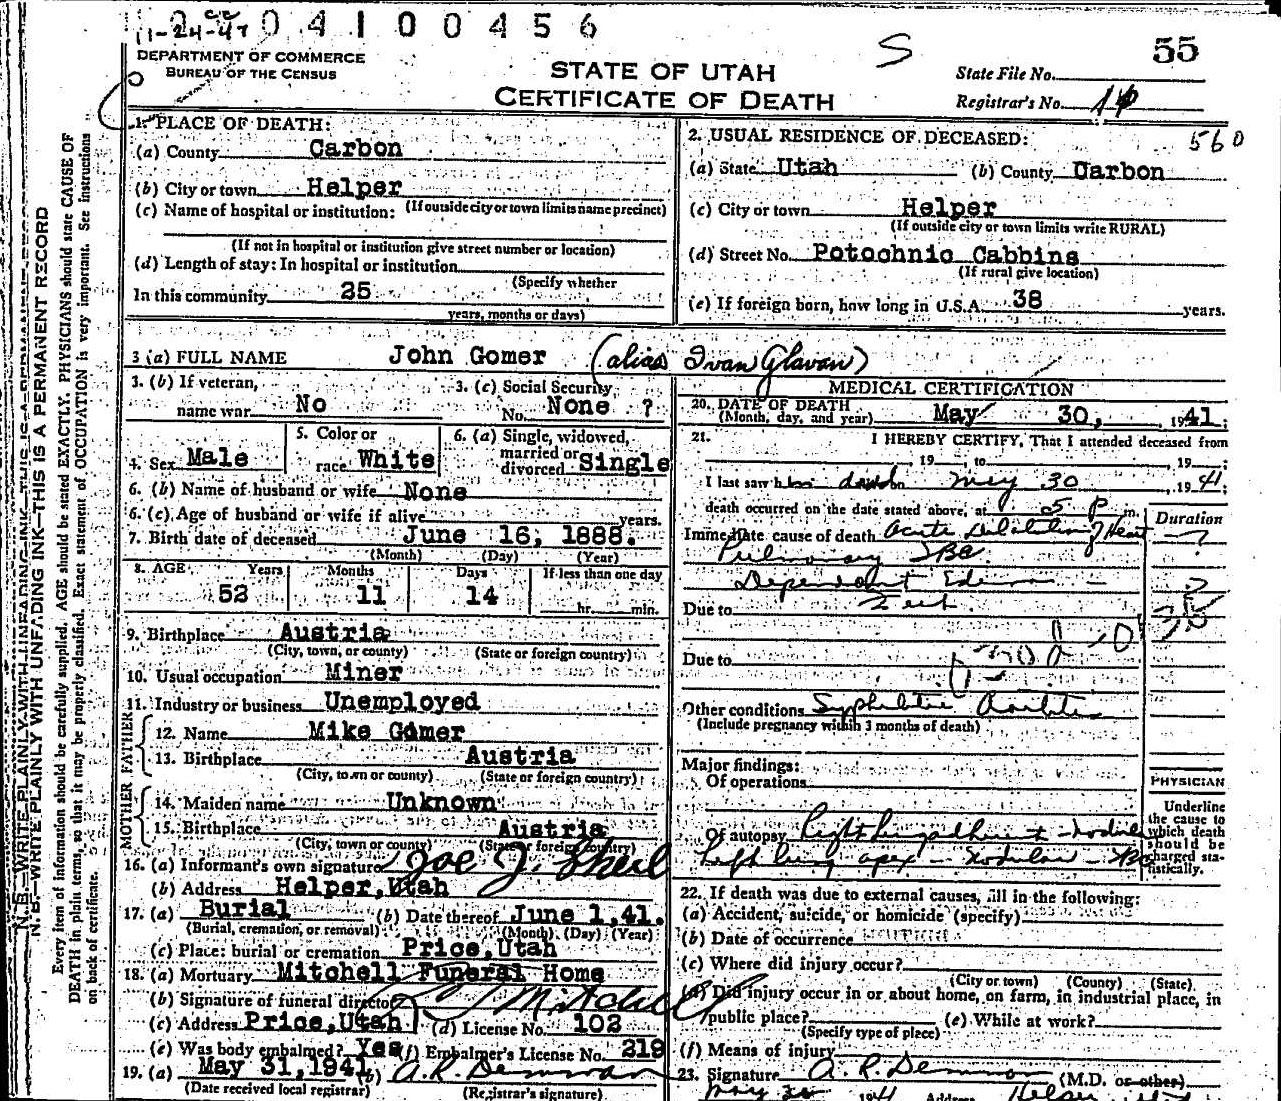 11-24-47 04100456
DEPARTMENT OF COMMERCE
BUREAU OF THE CENSUS
S
55
STATE OF UTAH
CERTIFICATE OF DEATH
State File No.
Registrar's No. 14
560
1. PLACE OF DEATH:
(a) County Carbon
(b) City or town Helper
(If outside city or town limits name precinct)
(c) Name of hospital or institution:
(If not in hospital or institution give street number or location)
(d) Length of stay: In hospital or institution
(Specify whether
In this community 25
years, months or days)
2. USUAL RESIDENCE OF DECEASED:
(a) State Utah (b) County Carbon
(c) City or town Helper
(If outside city or town limits write RURAL)
(d) Street No. Potochnic Cabbins
(If rural give location)
(e) If foreign born, how long in U.S.A. 38 years.
3 (a) FULL NAME John Gomer (alias Ivan Glavan)
3. (b) If veteran,
name war No
3. (c) Social Security
No. None ?
4. Sex Male
5. Color or
race White
6. (a) Single, widowed,
married or
divorced Single
6. (b) Name of husband or wife None
6. (c) Age of husband or wife if alive years.
7. Birth date of deceased June 16, 1888.
(Month) (Day) (Year)
8. AGE Years Months Days If less than one day
52 11 14 hr. min.
9. Birthplace Austria
(City, town, or county) (State or foreign country)
10. Usual occupation Miner
11. Industry or business Unemployed
FATHER
12. Name Mike Gomer
13. Birthplace Austria
(City, town or county) (State or foreign country)
MOTHER
14. Maiden name Unknown
15. Birthplace Austria
(City, town or county) (State or foreign country)
16. (a) Informant's own signature Joe J.
(b) Address Helper, Utah
17. (a) Burial (b) Date thereof June 1, 41.
(Burial, cremation, or removal) (Month) (Day) (Year)
(c) Place: burial or cremation Price, Utah
18. (a) Mortuary Mitchell Funeral Home
(b) Signature of funeral director Mitchell
(c) Address Price, Utah (d) License No. 102
(e) Was body embalmed? Yes (f) Embalmer's License No. 219
19. (a) May 31, 1941 (b) A.R. Demman
(Date received local registrar) (Registrar's signature)
MEDICAL CERTIFICATION
20. DATE OF DEATH
(Month, day, and year) May 30, 1941;
21. I HEREBY CERTIFY, That I attended deceased from
, 19 , to , 19 ;
I last saw him dead on May 30, 1941;
death occurred on the date stated above, at 5 P m.
Duration
Immediate cause of death Acute Dilatation of Heart ?
Pulmonary TBC
Dependent Edema
Due to Feet
Due to
Other conditions Syphilitic Aortitis
(Include pregnancy within 3 months of death)
Major findings:
Of operations
Of autopsy
Left lung apex - Nodular - TBC
PHYSICIAN
Underline
the cause to
which death
should be
charged sta-
tistically.
22. If death was due to external causes, fill in the following:
(a) Accident, suicide, or homicide (specify)
(b) Date of occurrence
(c) Where did injury occur?
(City or town) (County) (State)
(d) Did injury occur in or about home, on farm, in industrial place, in
public place? (e) While at work?
(Specify type of place)
(f) Means of injury
23. Signature A. R. Demman (M.D. or other)
May 30 1941 Address Helper
N. B.—WRITE PLAINLY WITH UNFADING INK—THIS IS A PERMANENT RECORD
Every item of information should be carefully supplied. AGE should be stated EXACTLY. PHYSICIANS should state CAUSE OF
DEATH in plain terms, so that it may be properly classified. Exact statement of OCCUPATION is very important. See instructions
on back of certificate.